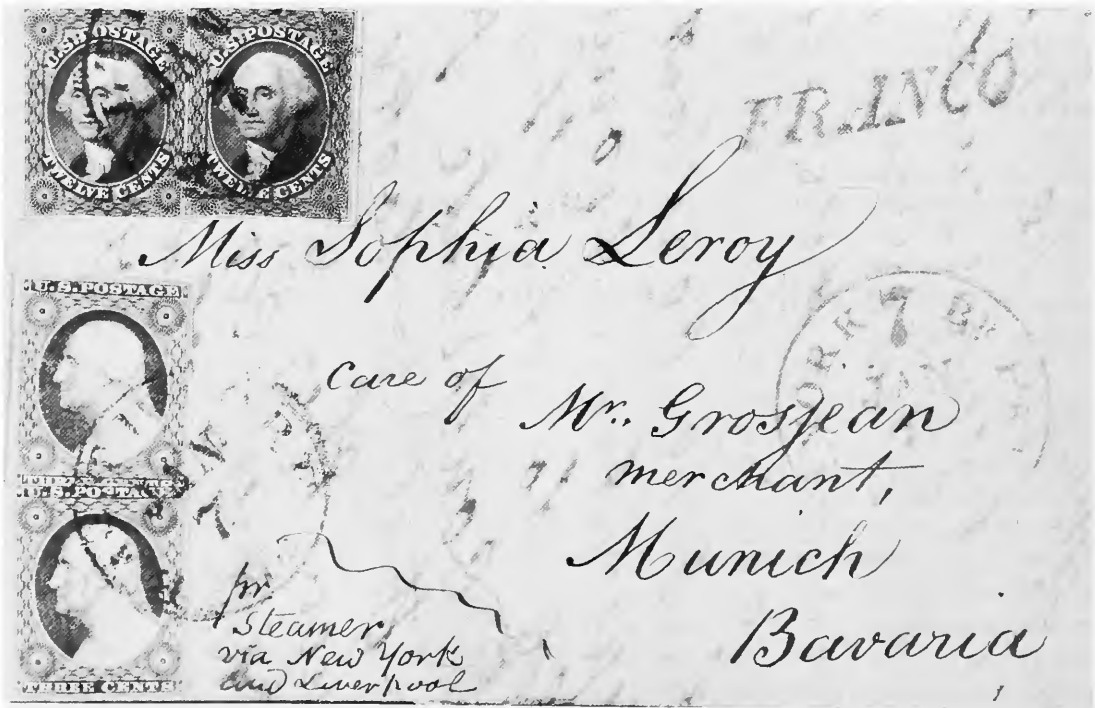 U.S. POSTAGE U.S. POSTAGE
TWELVE CENTS TWELVE CENTS
FRANCO
Miss Sophia Leroy
U.S. POSTAGE
THREE CENTS
U.S. POSTAGE
THREE CENTS
YORK 7 BR. PKT
JAN
Care of
Mr. Grosjean
merchant,
Munich
Bavaria
pr.
Steamer
via New York
and Liverpool